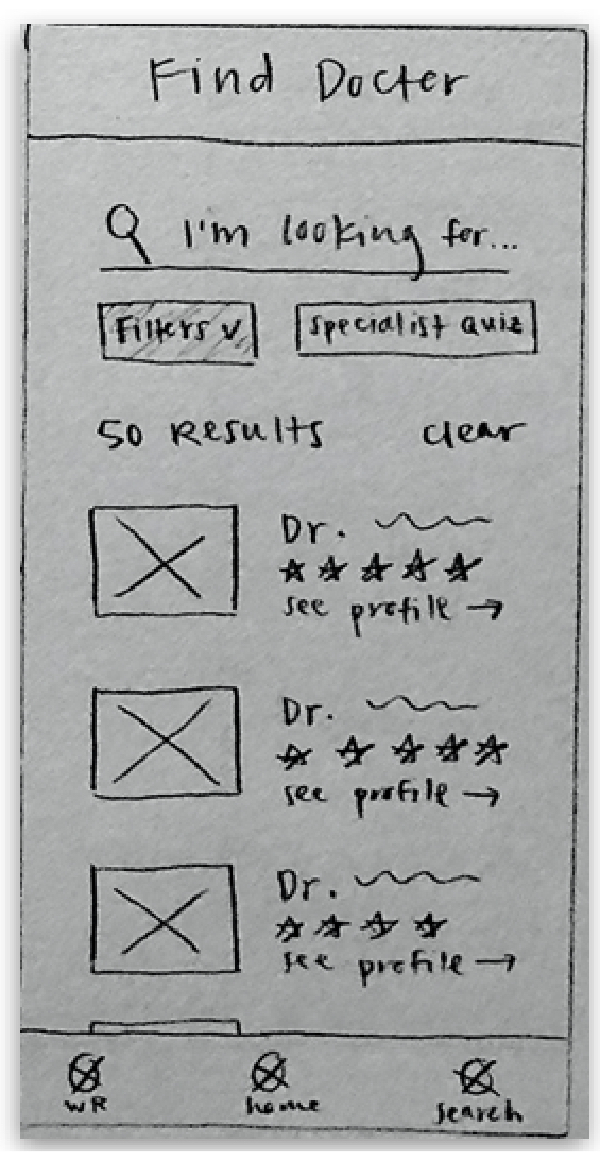 Find Docter
I'm looking for...
Filters v
specialist quiz
50 Results clear
Dr.
see profile →
Dr.
see profile →
Dr.
see profile →
WR home search